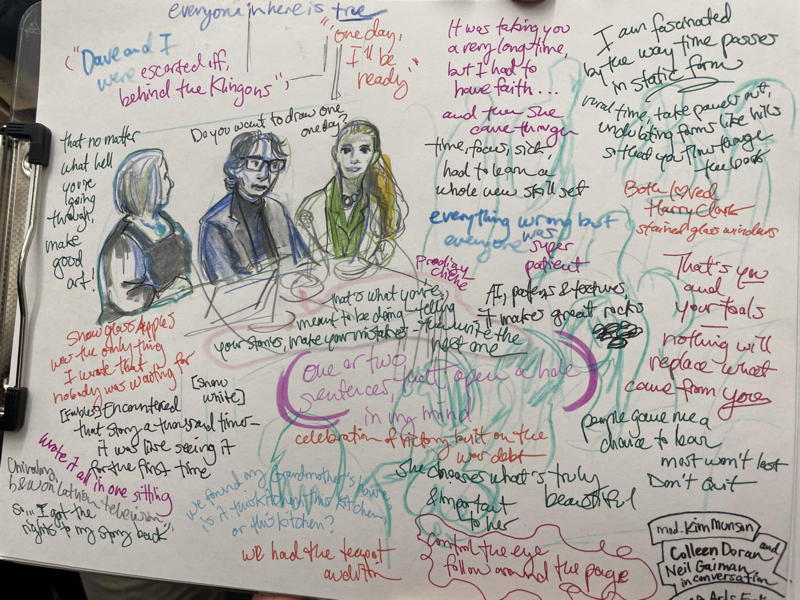 everyone in here is true
("Dave and I
were escorted off,
behind the Klingons",
"one day,
I'll be
ready"
It was taking you
a very long time,
but I had to
have faith...
and then she
came through
time, focus, sick,
had to learn a
whole new skill set
I am fascinated
by the way time passes
in static form
time, take panels out,
undulating forms like hills
so that you
Both loved
Harry Clark
stained glass windows
that no matter
what hell
you're
going
through,
make
good
art!
Do you want to draw one
one day?
everything wrong but
everyone was
super
patient
Prodigy
cliche
AI, patterns & textures,
it makes great rocks
That's you
and
your tools
nothing will
replace what
came from you
that's what you're
meant to be doing - telling
your stories, make your mistakes - then write the
next one
Snow Glass Apples
was the only thing
I wrote that
nobody was waiting for
[Snow
White]
Encountered
that story a thousand times -
it was like seeing it
for the first time
wrote it all in one sitting
One or two
sentences that open a hole
in my mind
celebration of victory built on the
war debt
people gave me a
chance to learn
most won't last
Don't Quit
she chooses what's truly
& important
beautiful
to her
so... I got the
rights to my story back"
we found my Grandmother's house,
is it this kitchen, this kitchen,
or this kitchen?
we had the teapot
audition
Control the eye
follow around the page
mod. Kim Munson
Colleen Doran
and
Neil Gaiman
in conversation